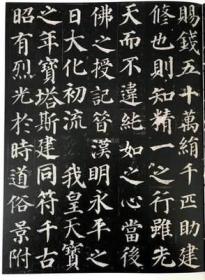 賜錢五十萬絹千匹助建
修也則知精一之行雖先
天而不違純如之心當後
佛之授記昔漢明永平之
日大化初流 我皇天寶
之年寶塔斯建同符千古
昭有烈光於時道俗景附